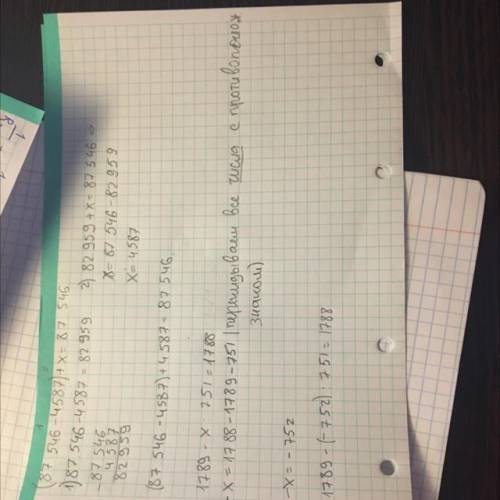 (87 546 - 4587) + x = 87 546
1) 87 546 - 4587 = 82959 2) 82 959 + x = 87 546 ⇒
-87546
4587
82959
x = 87 546 - 82959
x = 4587
(87 546 - 4587) + 4587 = 87 546
1789 - x · 751 = 1788
- x = 1788 - 1789 - 751 (перекидываем все числа с противополож
знаком)
-x = - 752
1789 - (-752) · 751 = 1788